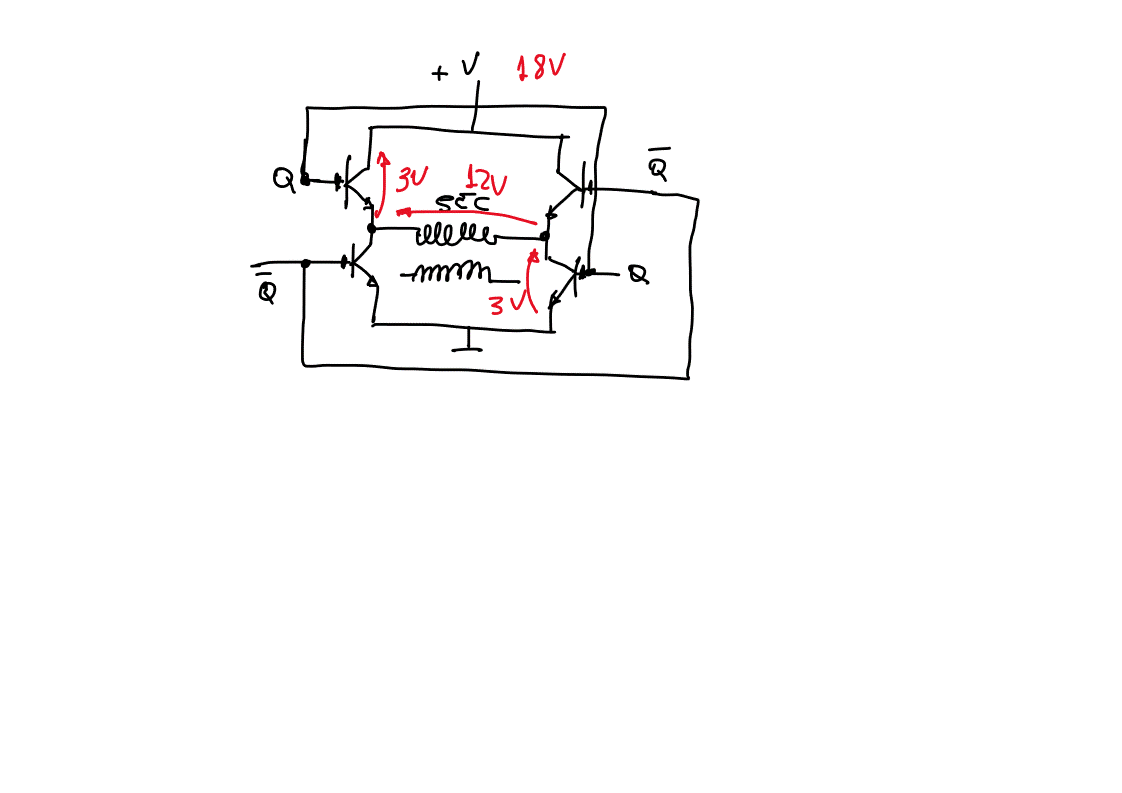 + V 18V
Q̅
Q 3V 12V
SEC
Q̅ Q
3V